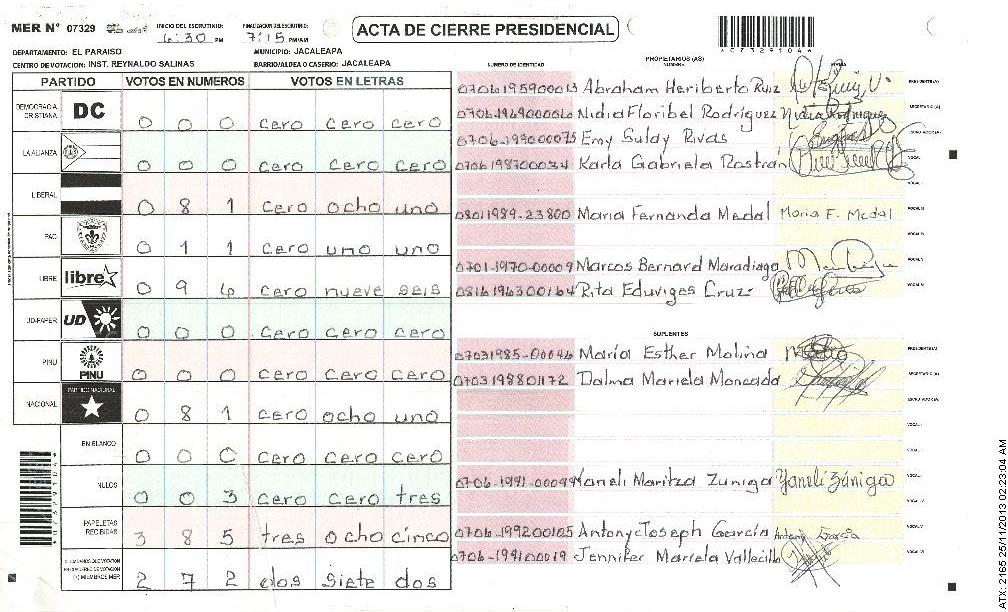 MER Nº 07329
INICIO DEL ESCRUTINIO: 6:30 PM
FINALIZACION DEL ESCRUTINIO: 7:15 PM/AM
ACTA DE CIERRE PRESIDENCIAL
073291041
DEPARTAMENTO: EL PARAISO
MUNICIPIO: JACALEAPA
CENTRO DE VOTACION: INST. REYNALDO SALINAS
BARRIO/ALDEA O CASERIO: JACALEAPA
PARTIDO VOTOS EN NUMEROS VOTOS EN LETRAS
DEMOCRACIA CRISTIANA DC 0 0 0 cero cero cero
LA ALIANZA 0 0 0 cero cero cero
LIBERAL 0 8 1 cero ocho uno
PAC 0 1 1 cero uno uno
LIBRE libre 0 9 6 cero nueve seis
UD-FAPER UD 0 0 0 cero cero cero
PINU PINU 0 0 0 cero cero cero
NACIONAL PARTIDO NACIONAL 0 8 1 cero ocho uno
EN BLANCO 0 0 0 cero cero cero
NULOS 0 0 3 cero cero tres
PAPELETAS RECIBIDAS 3 8 5 tres ocho cinco
(+) MIEMBROS MER 2 7 2 dos siete dos
NUMERO DE IDENTIDAD
PROPIETARIOS (AS)
NOMBRE
FIRMA
0706195900013 Abraham Heriberto Ruiz PRESIDENTE(A)
Nidia Floribel Rodríguez Nidia Rodriguez SECRETARIO (A)
Emy Suldy Rivas ESCRUTADOR(A)
0706198700034 Karla Gabriela Rostrán VOCAL I
VOCAL II
0801 1989-23800 Maria Fernanda Medal Maria F. Medal VOCAL III
VOCAL IV
0701-1970-00009 Marcos Bernard Maradiaga VOCAL V
0816196300164 Rita Eduviges Cruz VOCAL VI
SUPLENTES
07031985-00046 María Esther Molina PRESIDENTE(A)
0703198801172 Dalma Mariela Moncada SECRETARIO (A)
ESCRUTADOR(A)
VOCAL I
VOCAL II
0706-1991-00099 Yaneli Maritza Zuniga Yaneli Zúniga VOCAL III
VOCAL IV
0706-199200105 Antony Joseph García Antony García VOCAL V
0706-199100019 Jennifer Mariela Vallecillo VOCAL VI
ATX: 2165 25/11/2013 02:23:04 AM